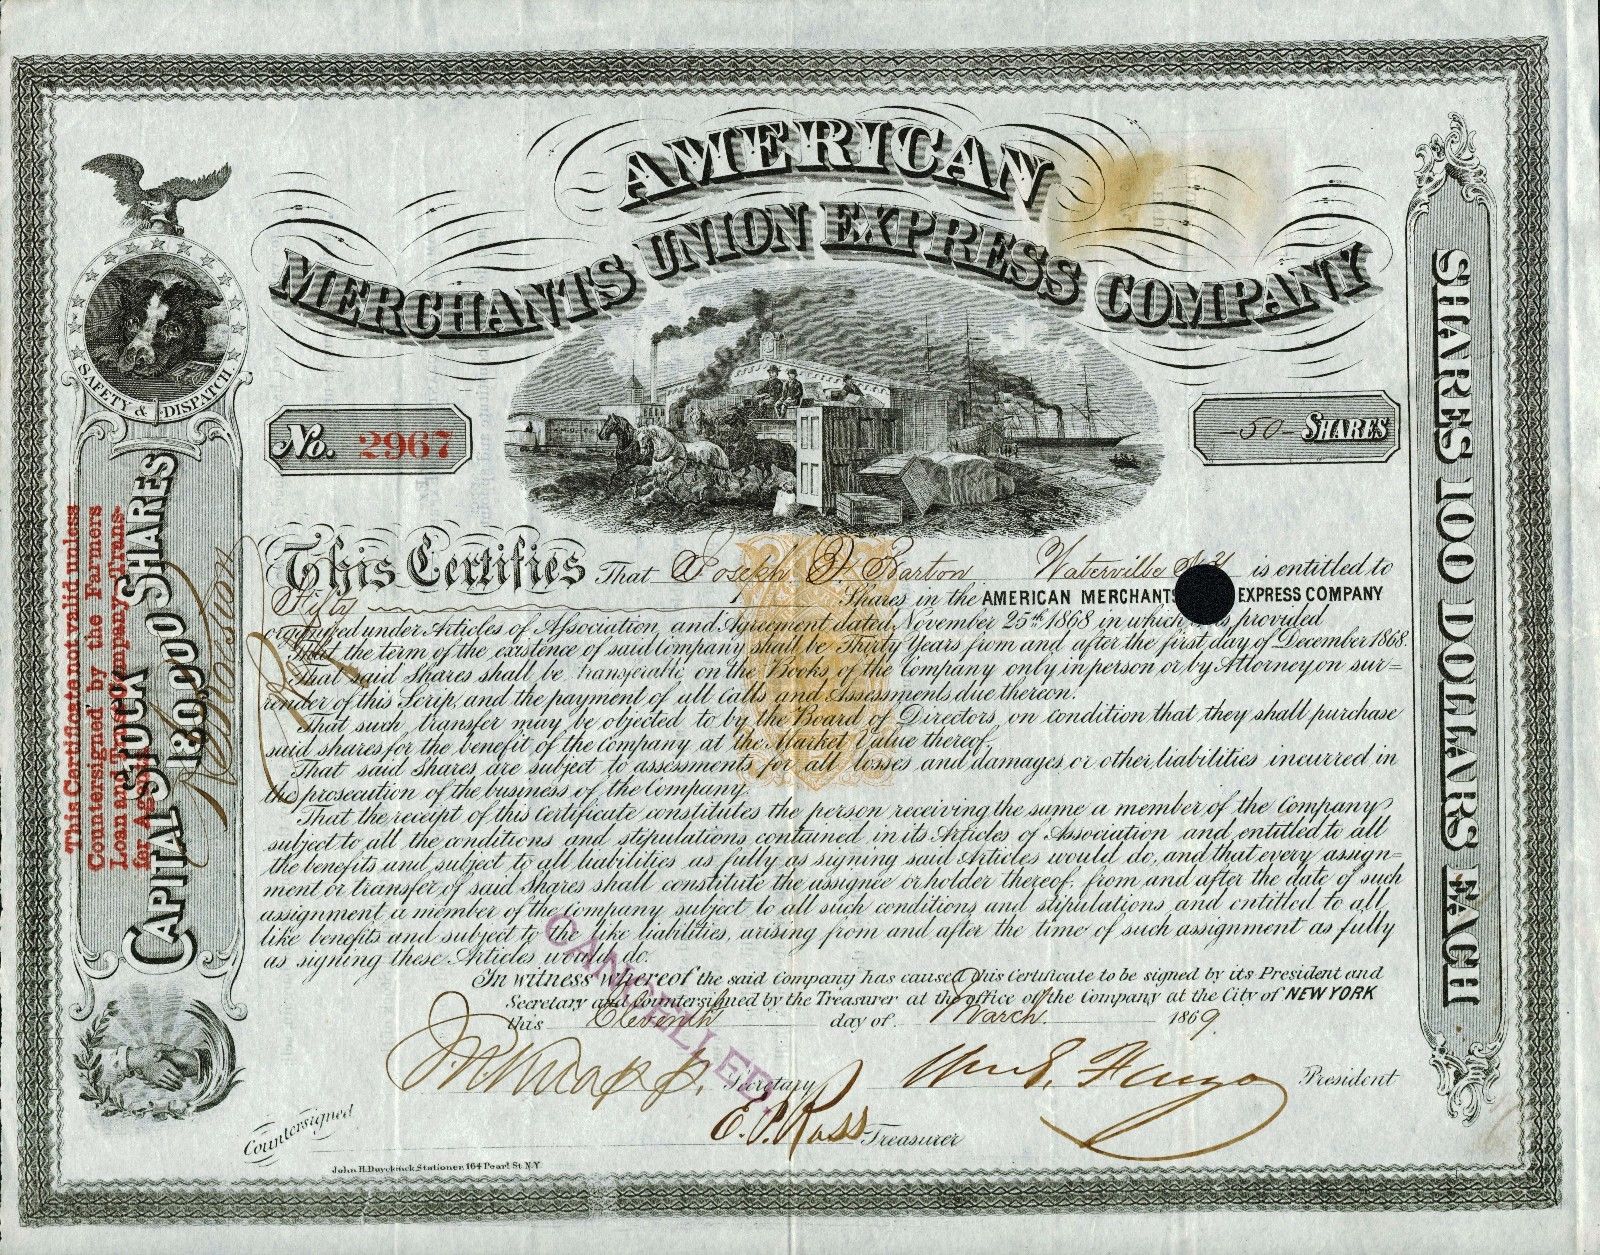 AMERICAN
MERCHANTS UNION EXPRESS COMPANY
SAFETY & DISPATCH
No. 2967
-50- SHARES
This Certifies That Joseph F Barton Waterville N.Y. is entitled to
Fifty Shares in the AMERICAN MERCHANTS EXPRESS COMPANY
organized under Articles of Association, and Agreement dated, November 25th 1868 in which it is provided
That the term of the existence of said Company shall be Thirty Years from and after the first day of December 1868.
That said Shares shall be transferable on the Books of the Company only in person or by Attorney on sur=
render of this Scrip, and the payment of all Calls and Assessments due thereon.
That such, transfer may be objected to by the Board of Directors, on condition that they shall purchase
said shares for the benefit of the Company at the Market Value thereof.
That said Shares, are subject to assessments for all losses and damages, or other liabilities incurred in
the prosecution of the business of the Company.
That the receipt of this Certificate constitutes the person receiving the same a member of the Company
subject to all the conditions and stipulations contained in its Articles of Association and entitled to all
the benefits and subject to all liabilities as fully as signing said Articles would do, and that every assign=
ment or transfer of said Shares shall constitute the assignee or holder thereof, from and after the date of such
assignment a member of the Company subject to all such conditions and stipulations, and entitled to all
like benefits and subject to the like liabilities, arising from and after the time of such assignment as fully
as signing these Articles would do.
In witness whereof the said Company has caused this Certificate to be signed by its President and
Secretary and Countersigned by the Treasurer at the office of the Company at the City of NEW YORK
this Eleventh day of March 1869.
CANCELLED.
J. N. Knapp Secretary
Wm G. Fargo President
E. P. Ross Treasurer
Countersigned
John H. Duyckinck Stationer, 164 Pearl St. N.Y.
This Certificate not valid unless
Countersigned by the Farmers
Loan and Trust Company, Trans-
fer Agents.
CAPITAL STOCK 180,000 SHARES
SHARES 100 DOLLARS EACH